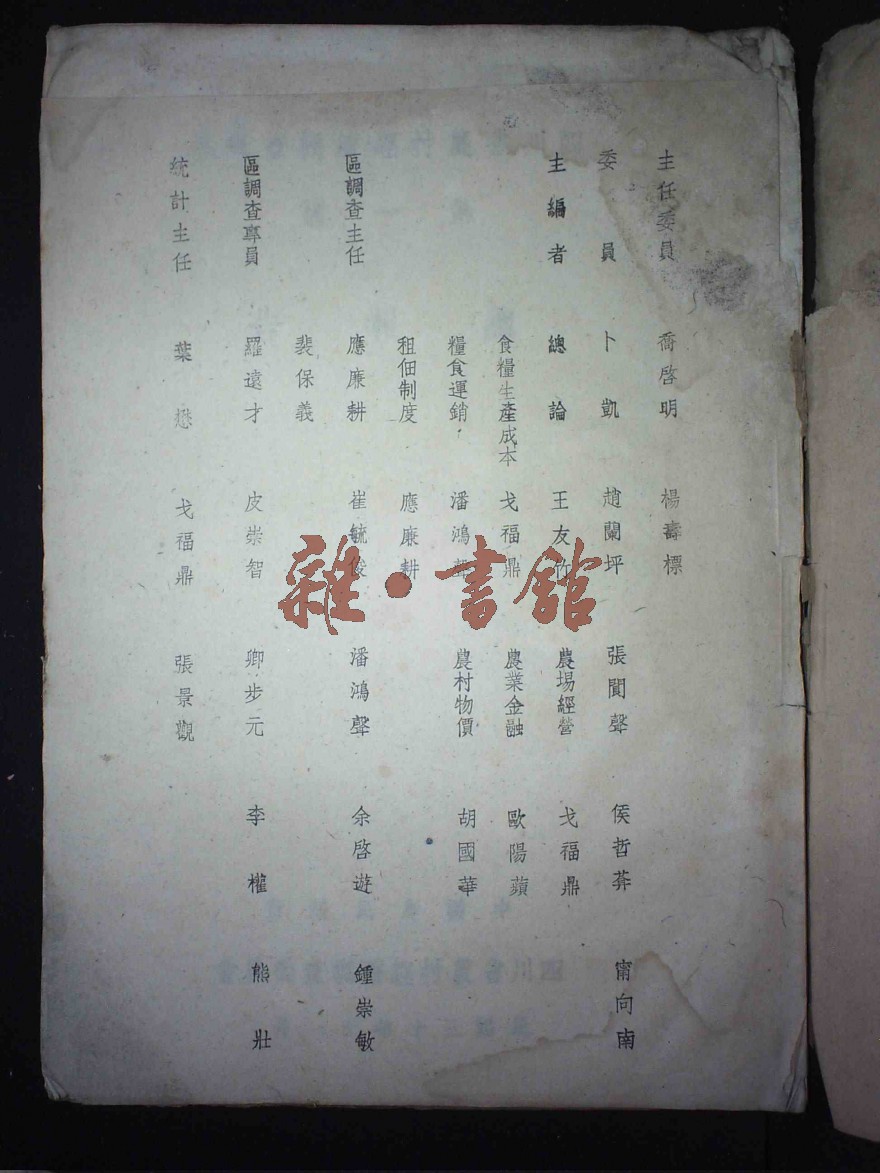 主任委員 喬啓明 楊壽標
委員 卜凱 趙蘭坪 張聞聲 侯哲葊 甯向南
主編者 總論 王友竹 農場經營 戈福鼎
食糧生產成本 戈福鼎 農業金融 歐陽蘋
糧食運銷 潘鴻聲 農村物價 胡國華
租佃制度 應廉耕
區調查主任 應廉耕 崔毓俊 潘鴻聲 余啓遊 鍾崇敏
裴保義
區調查專員 羅遠才 皮崇智 卿步元 李權 熊壯
統計主任 葉懋 戈福鼎 張景觀
雜·書館